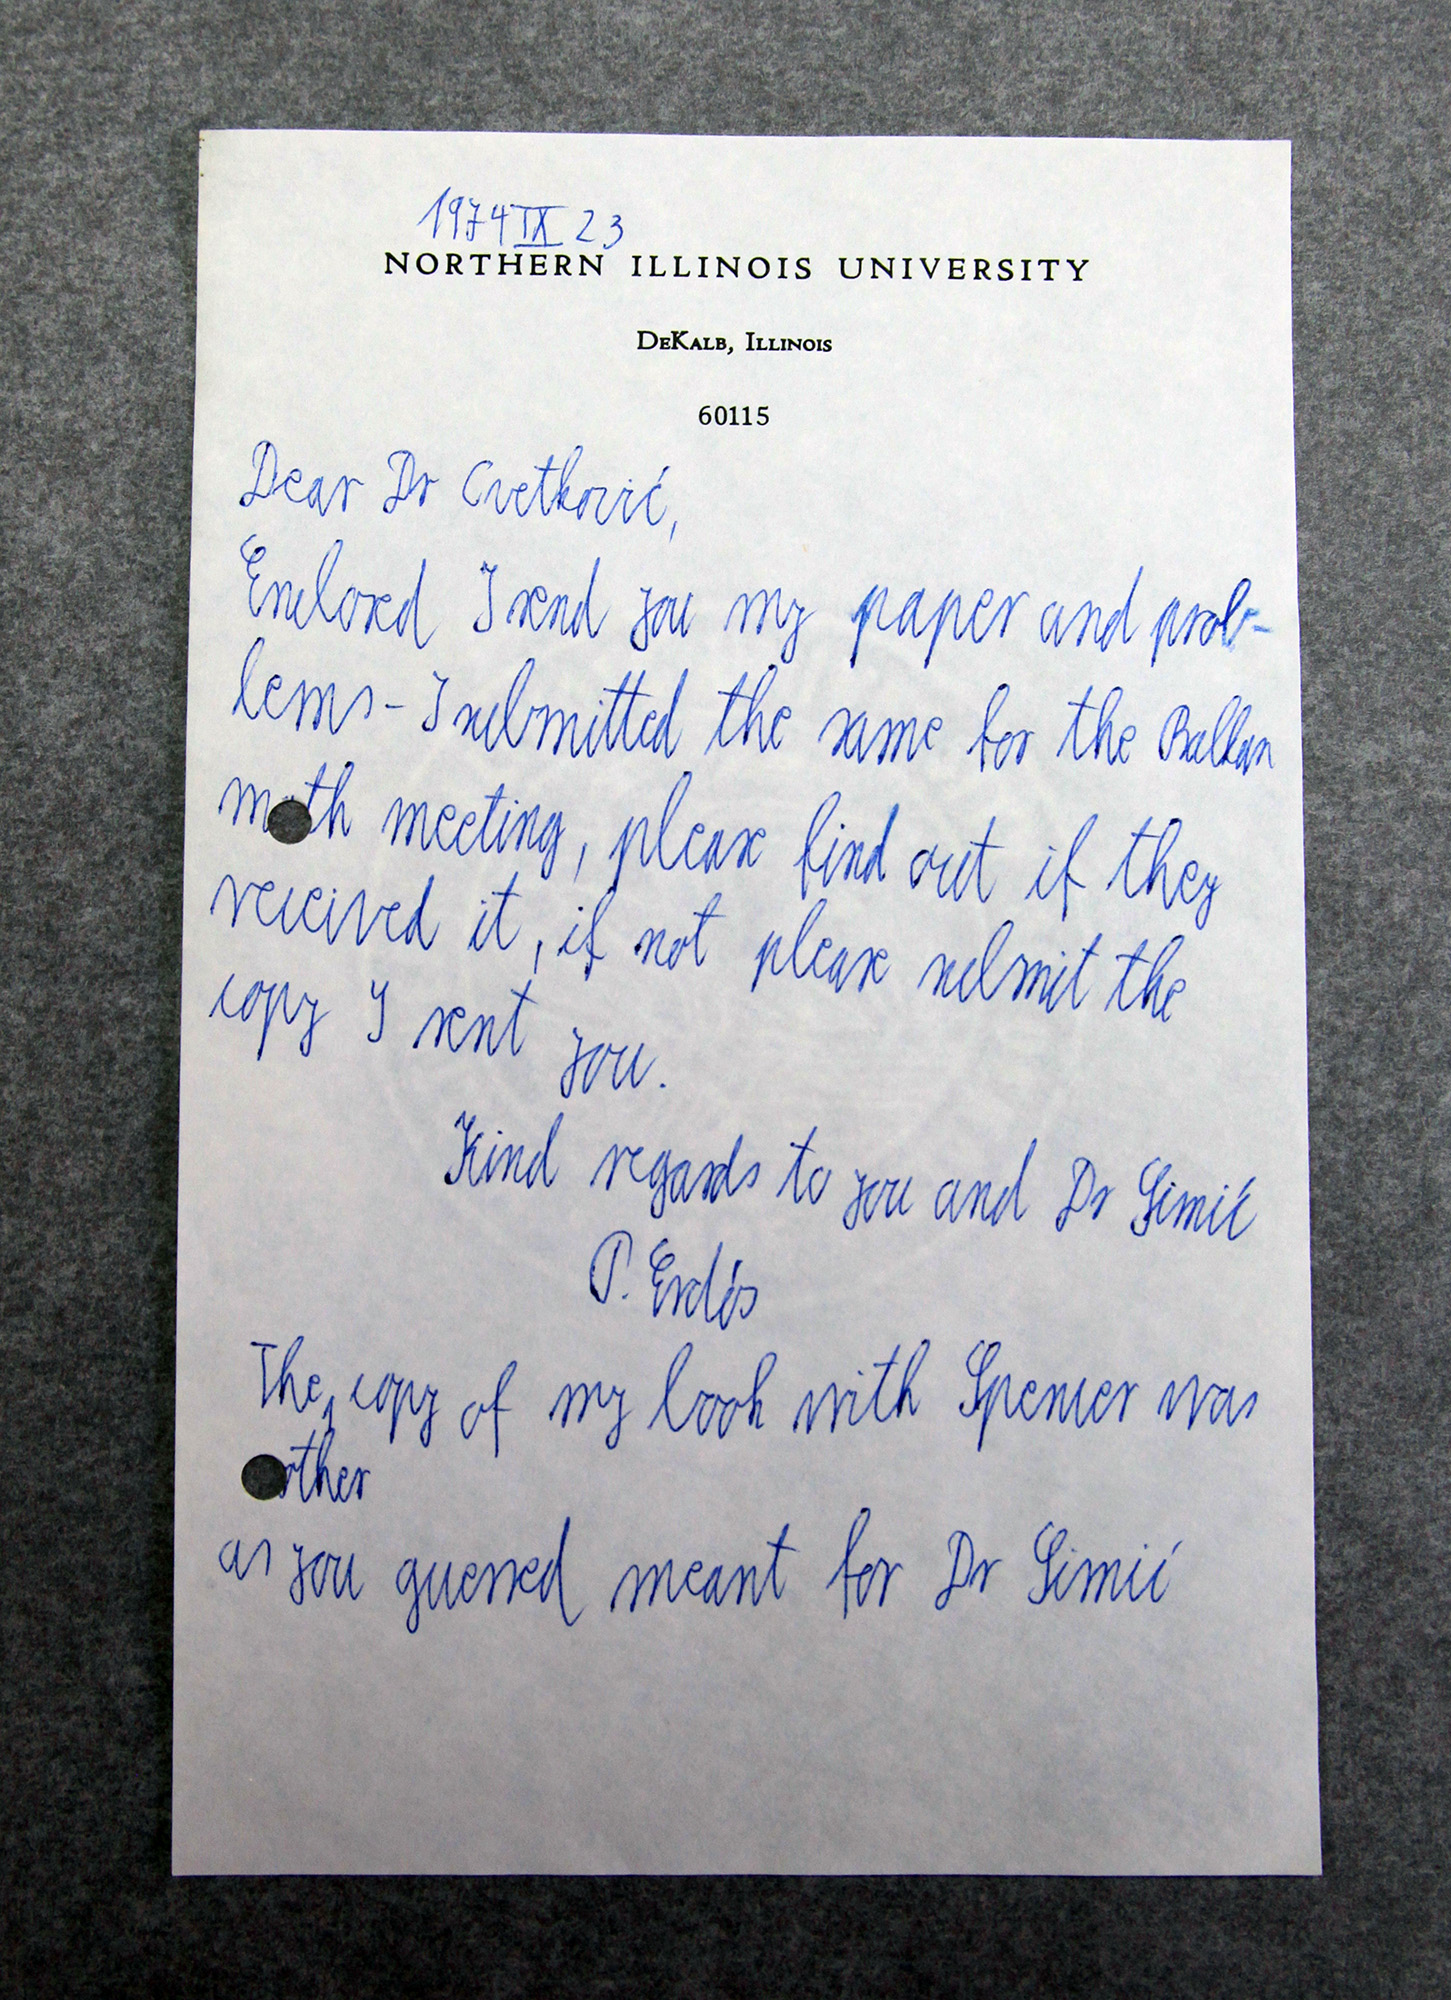 1974 IX 23
NORTHERN ILLINOIS UNIVERSITY
DEKALB, ILLINOIS
60115
Dear Dr Cvetković,
Enclosed I send you my paper and prob-
lems - I submitted the same for the Balkan
math meeting, please find out if they
received it, if not please submit the
copy I sent you.
Kind regards to you and Dr Simić
P. Erdős
The copy of my book with Spencer was
other
as you guessed meant for Dr Simić